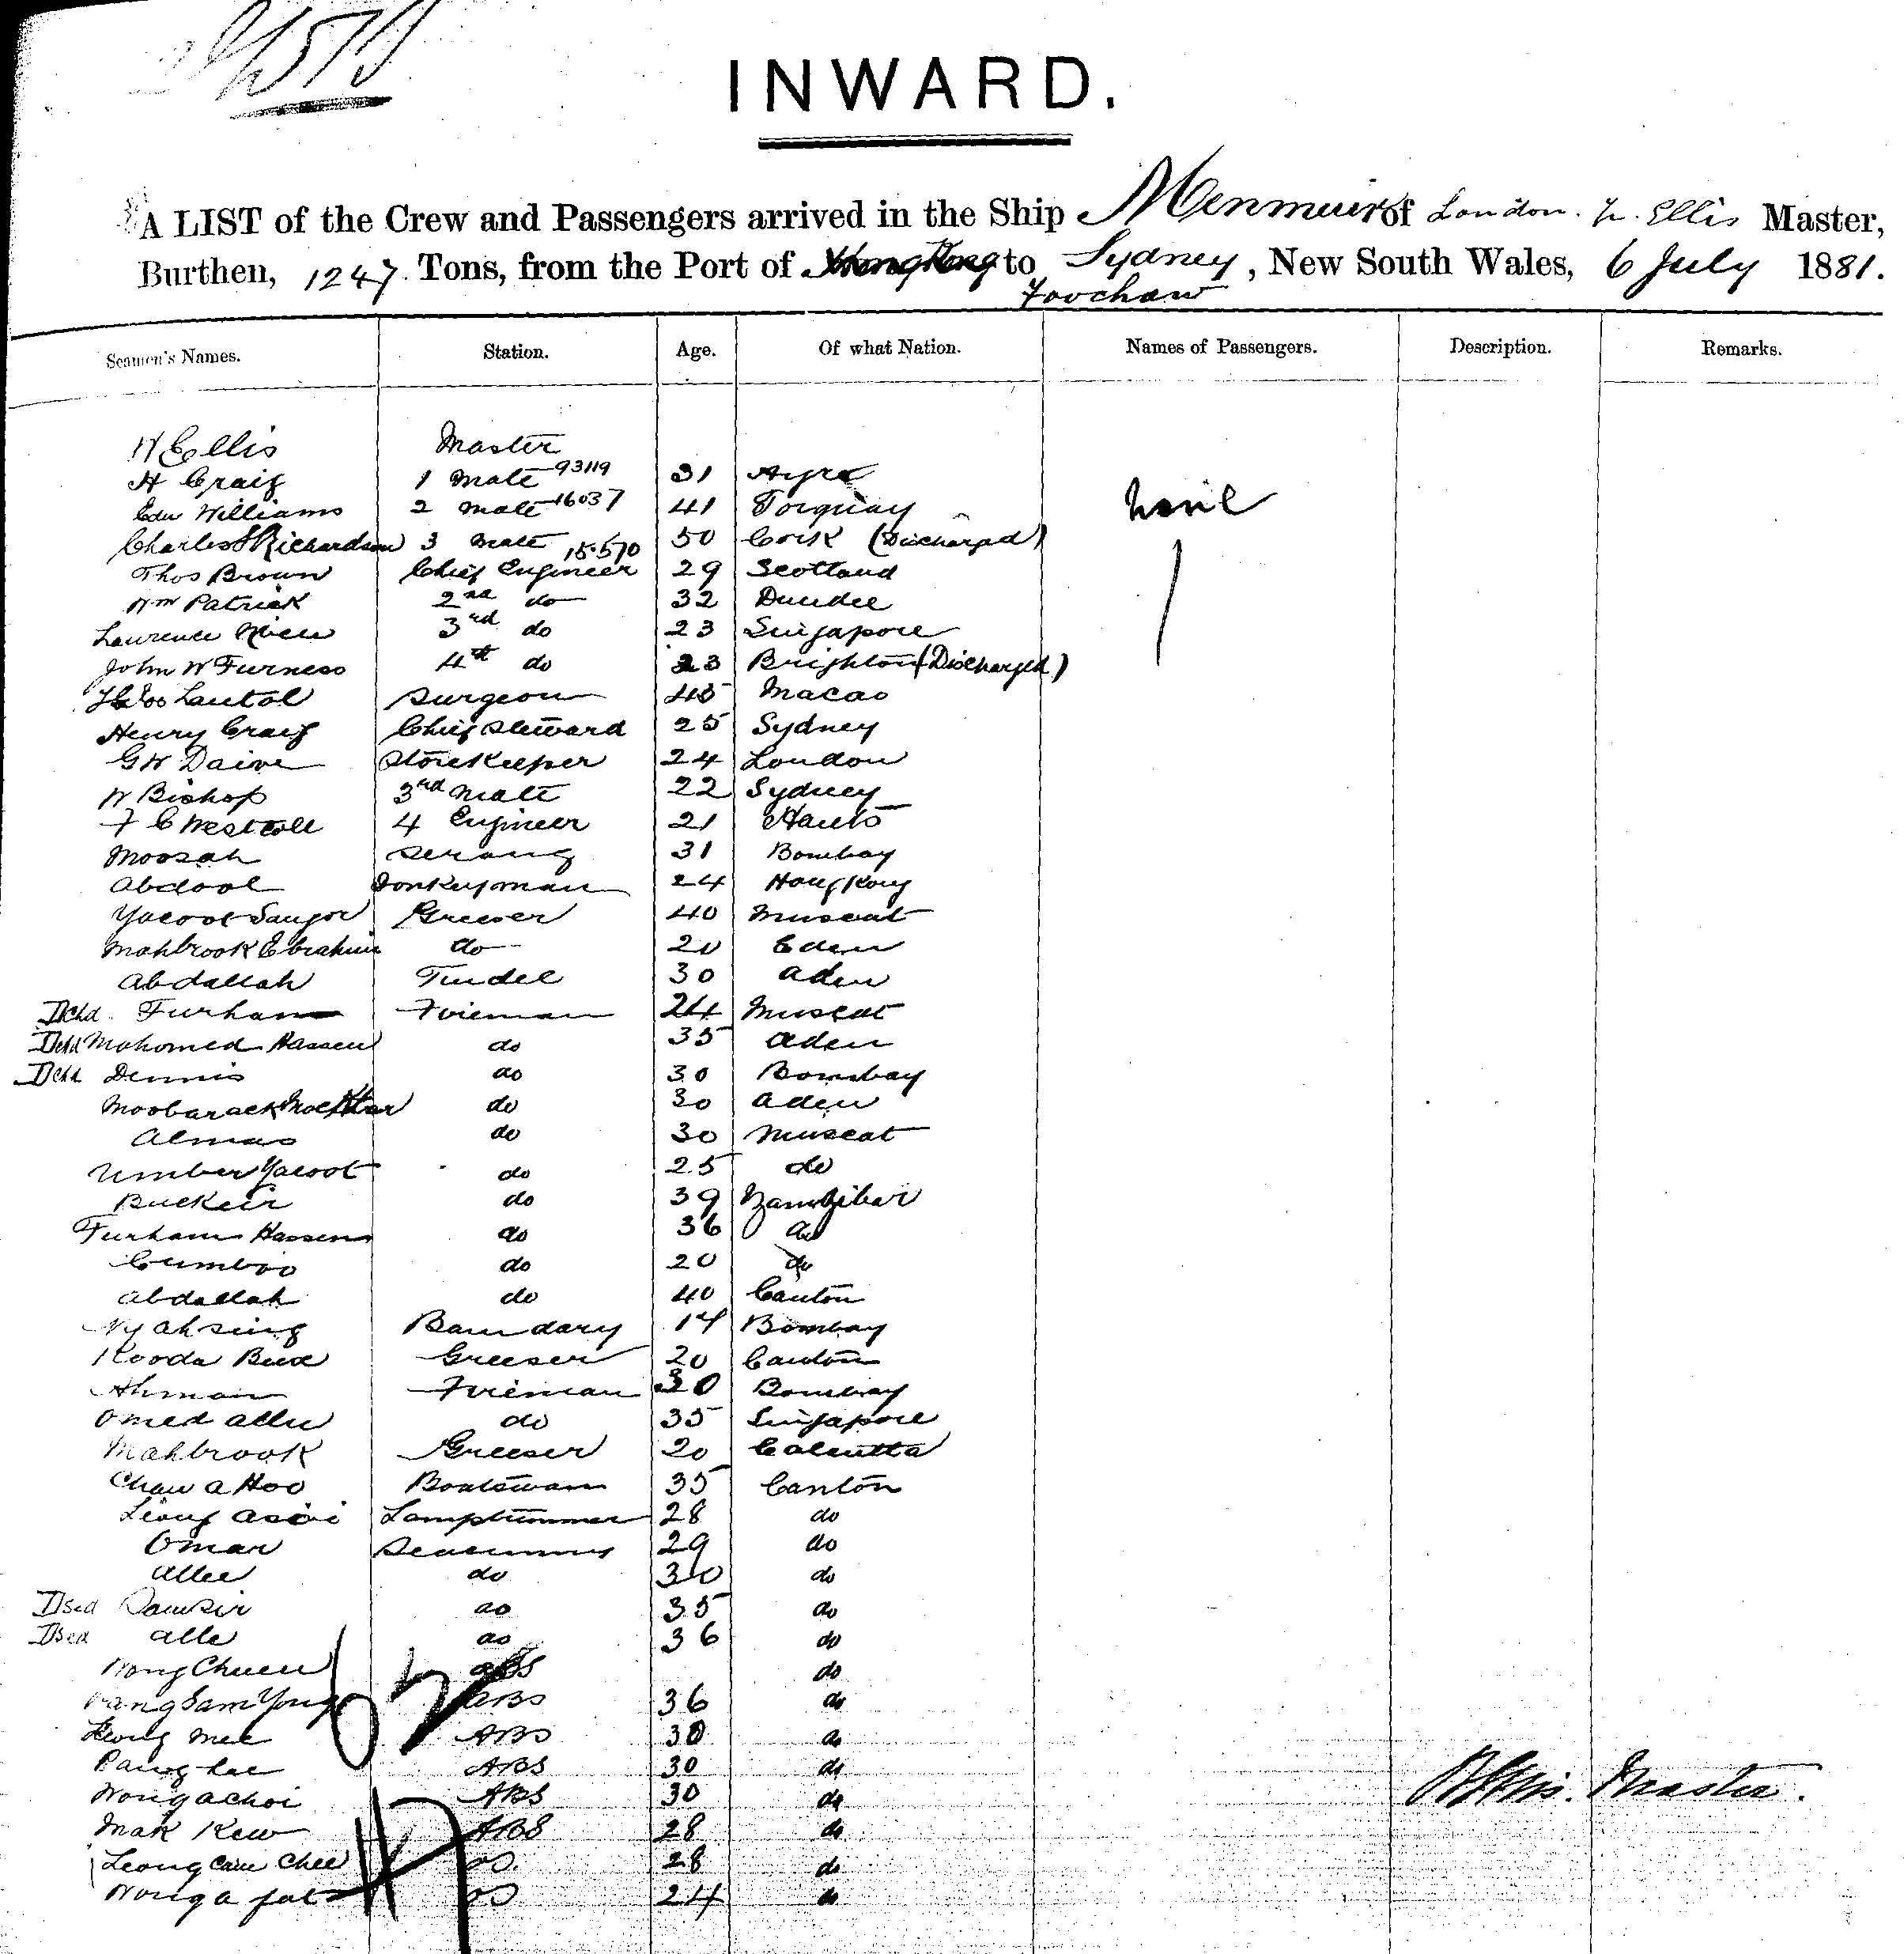 INWARD.
A LIST of the Crew and Passengers arrived in the Ship Menmuir of London. Ellis Master,
Burthen, 1247 Tons, from the Port of Hong Kong to Sydney, New South Wales, 6 July 1881.
Foochow
Seamen's Names. Station. Age. Of what Nation. Names of Passengers. Description. Remarks.
W Ellis Master
H Craig 1 Mate 93119 31 Ayre
Edw Williams 2 Mate 16037 41 Torquay None
Charles Richardson 3 Mate 50 Cork (Discharged)
Thos Brown Chief Engineer 15.570 29 Scotland
Wm Patrick 2nd do 32 Dundee
Laurence 3rd do 23 Singapore
John W Furness 4th do 23 Brighton (Discharged)
Surgeon Macao
Henry Craig Chief Steward 25 Sydney
G W Storekeeper 24 London
W Bishop 3rd Mate 22 Sydney
F C 4 Engineer 21 Hants
Moosah Serang 31 Bombay
Abdool Donkeyman 24 Hong Kong
Yacoot Greeser 40 Muscat
Mahbrook Ebrahim do 20 Eden
Abdallah Tindel 30 Aden
Dchd Furham Fireman 24 Muscat
Dchd Mahomed Hassen do 35 Aden
Dchd Dennis do 30 Bombay
Moobarack do 30 Aden
Almas do 30 Muscat
Umber Yacoot do 25 do
Buckeir do 39 Zanzibar
Furham Hassen do 36 do
Cumboo do 20 do
Abdallah do 40 Canton
Ah Sing Bandary 14 Bombay
Kooda Bux Greeser 20 Canton
Ahman Fireman 30 Bombay
Omed Allee do 35 Singapore
Mahbrook Greeser 20 Calcutta
Chaw a Hoo Boatswain 35 Canton
Leong Lamptrimmer 28 do
Omar 29 do
Allee do 30 do
Dscd do 35 do
Dscd Alle do 36 do
Wong Chuen ABS do
Pang Sam Yong ABS 36 do
Leong Mee ABS 30 do
Pang ABS 30 do
Wong a choi ABS 30 do
W Ellis. Master.
Mak Kew ABS 28 do
Leong Chee OS. 28 do
Wong a fat OS 24 do